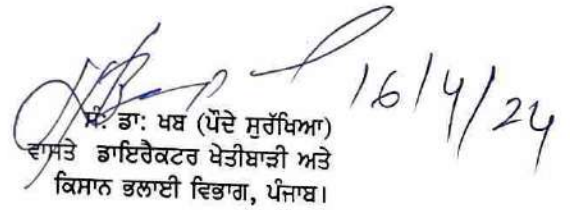 16/4/24
ਸੰ. ਡਾ: ਖਬ (ਪੌਦੇ ਸੁਰੱਖਿਆ)
ਵਾਸਤੇ ਡਾਇਰੈਕਟਰ ਖੇਤੀਬਾੜੀ ਅਤੇ
ਕਿਸਾਨ ਭਲਾਈ ਵਿਭਾਗ, ਪੰਜਾਬ।